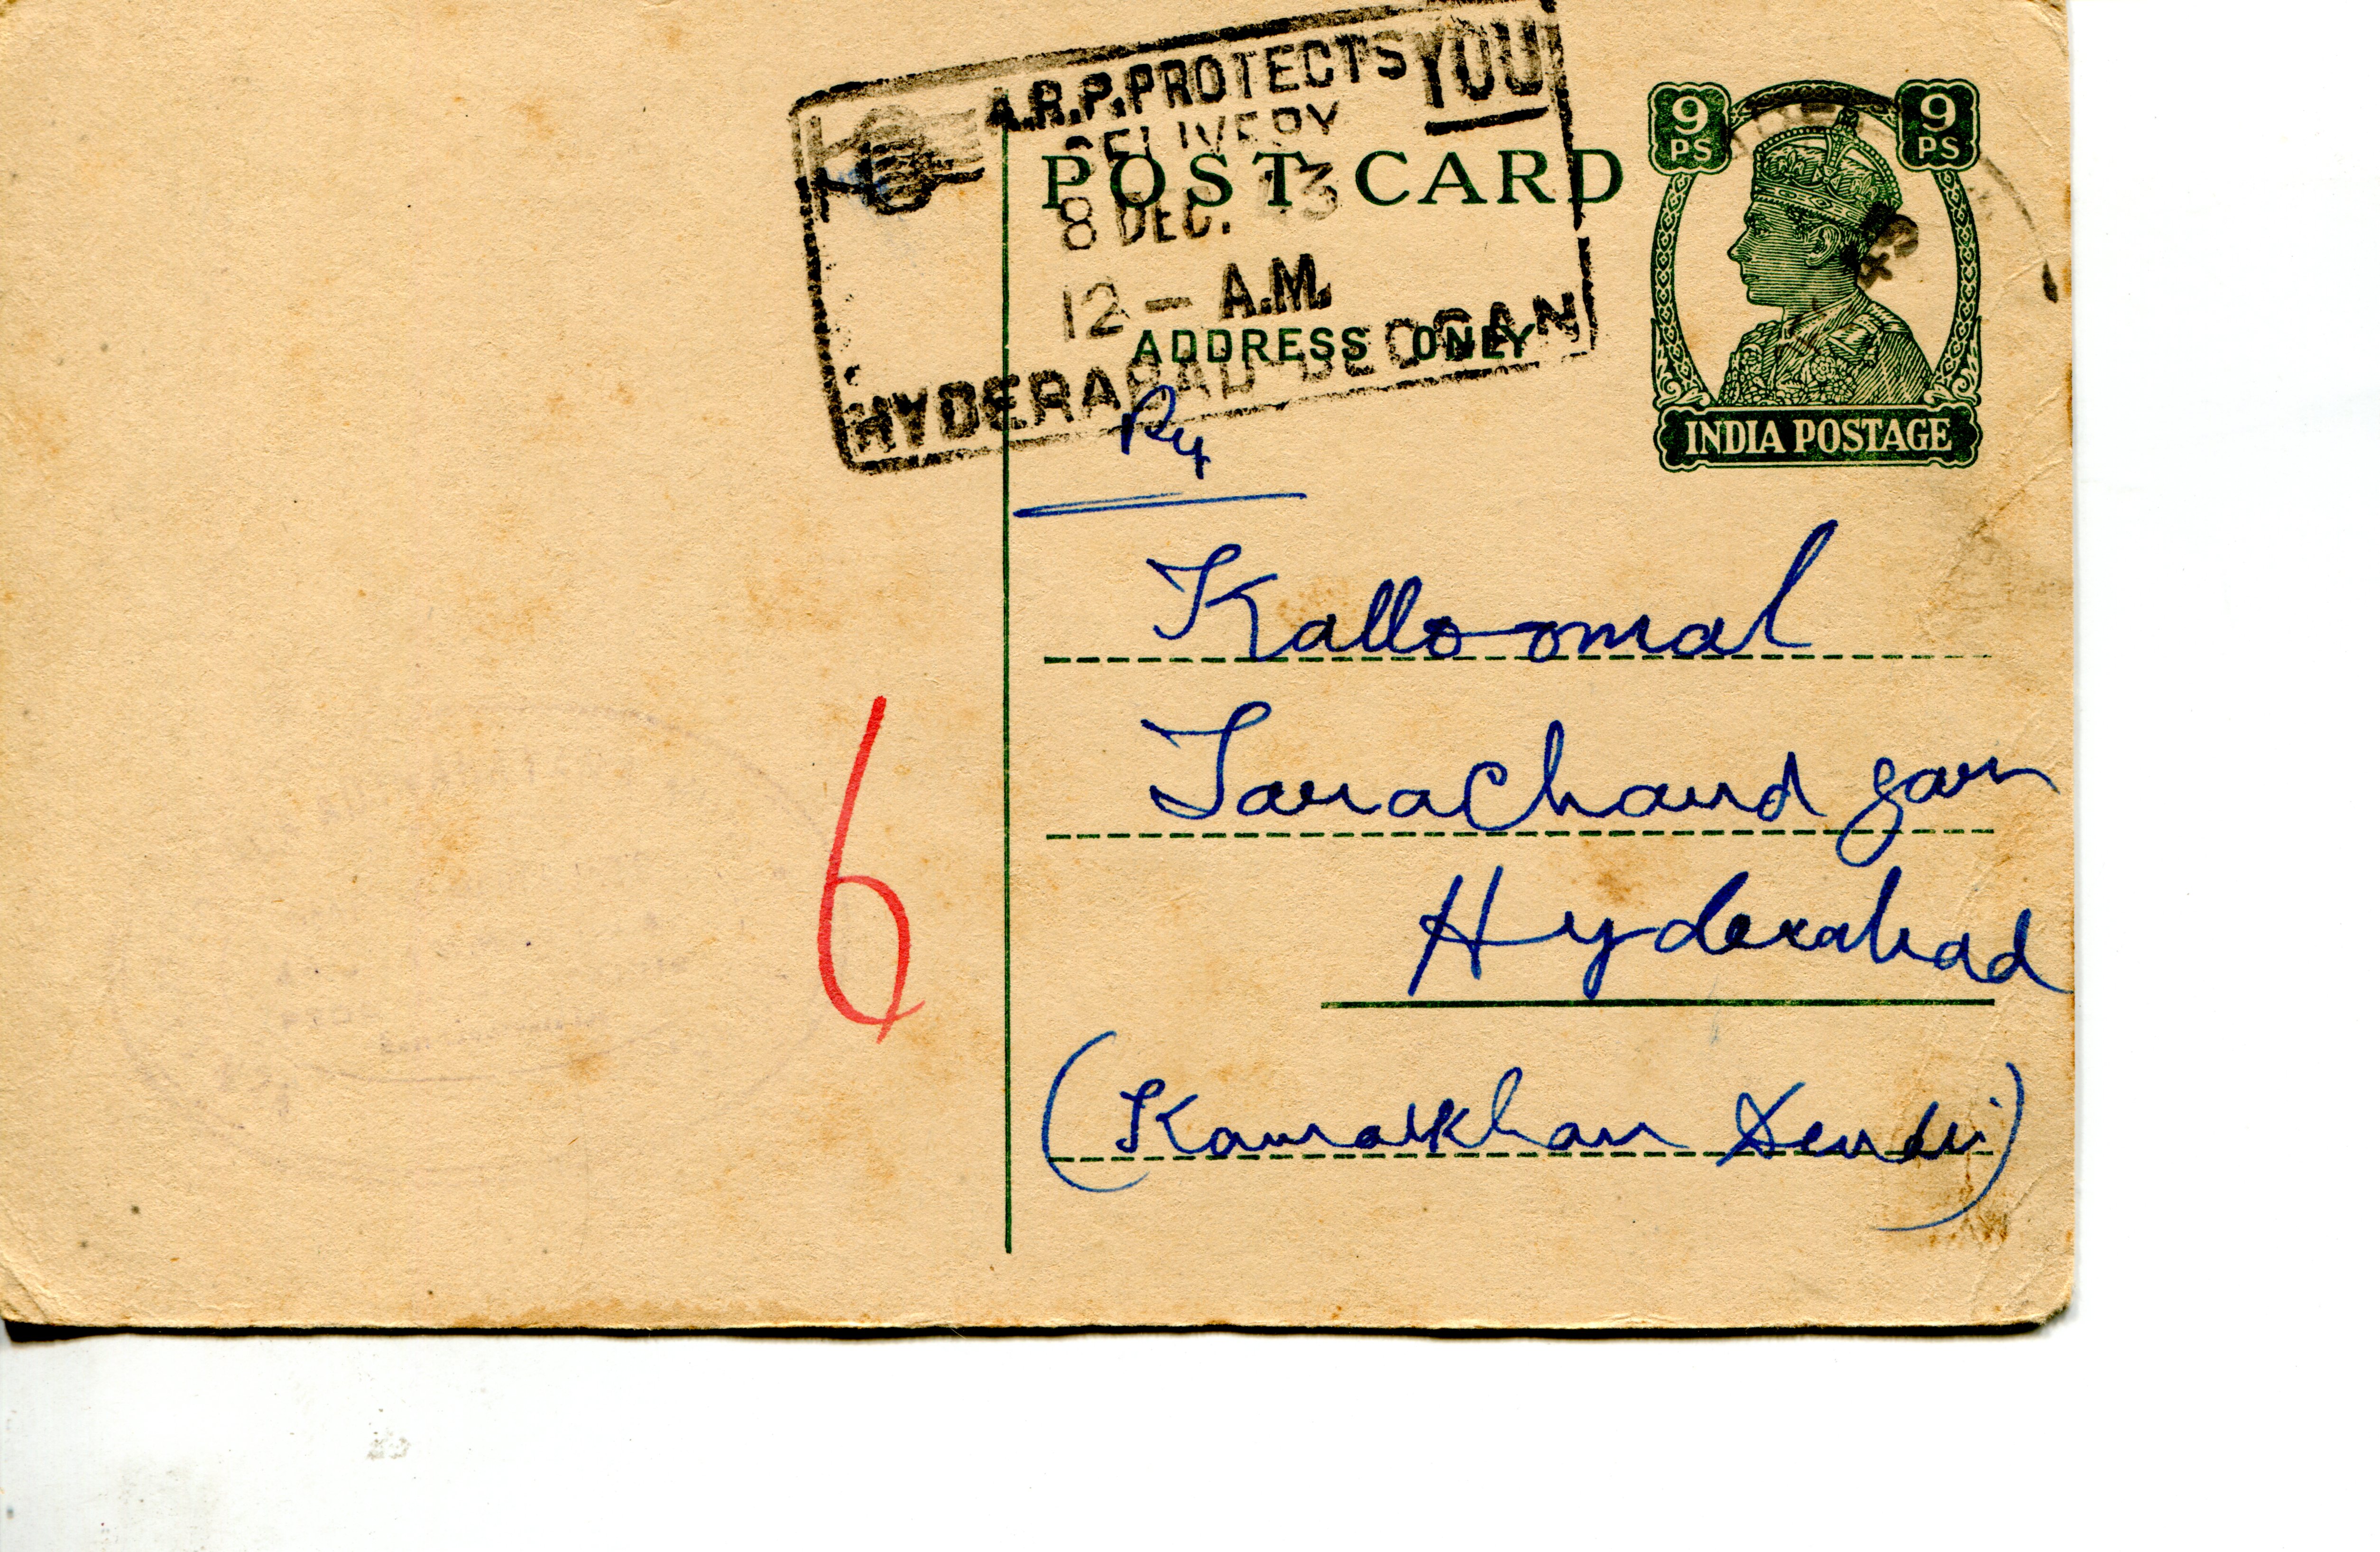 A.R.P. PROTECTS YOU
DELIVERY
8 DEC. 43
12 — A.M.
HYDERABAD-DECCAN
POST CARD
ADDRESS ONLY
9 PS
9 PS
43
INDIA POSTAGE
Kalloomal
TaraChand
Hyderabad
6